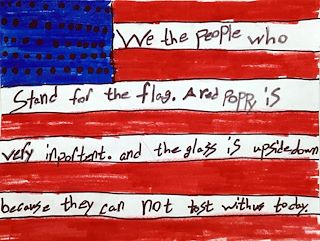 We the people who
Stand for the flag. A red POPPy is
very inportent. and the glass is upsidedown
because they can not tost with us today.